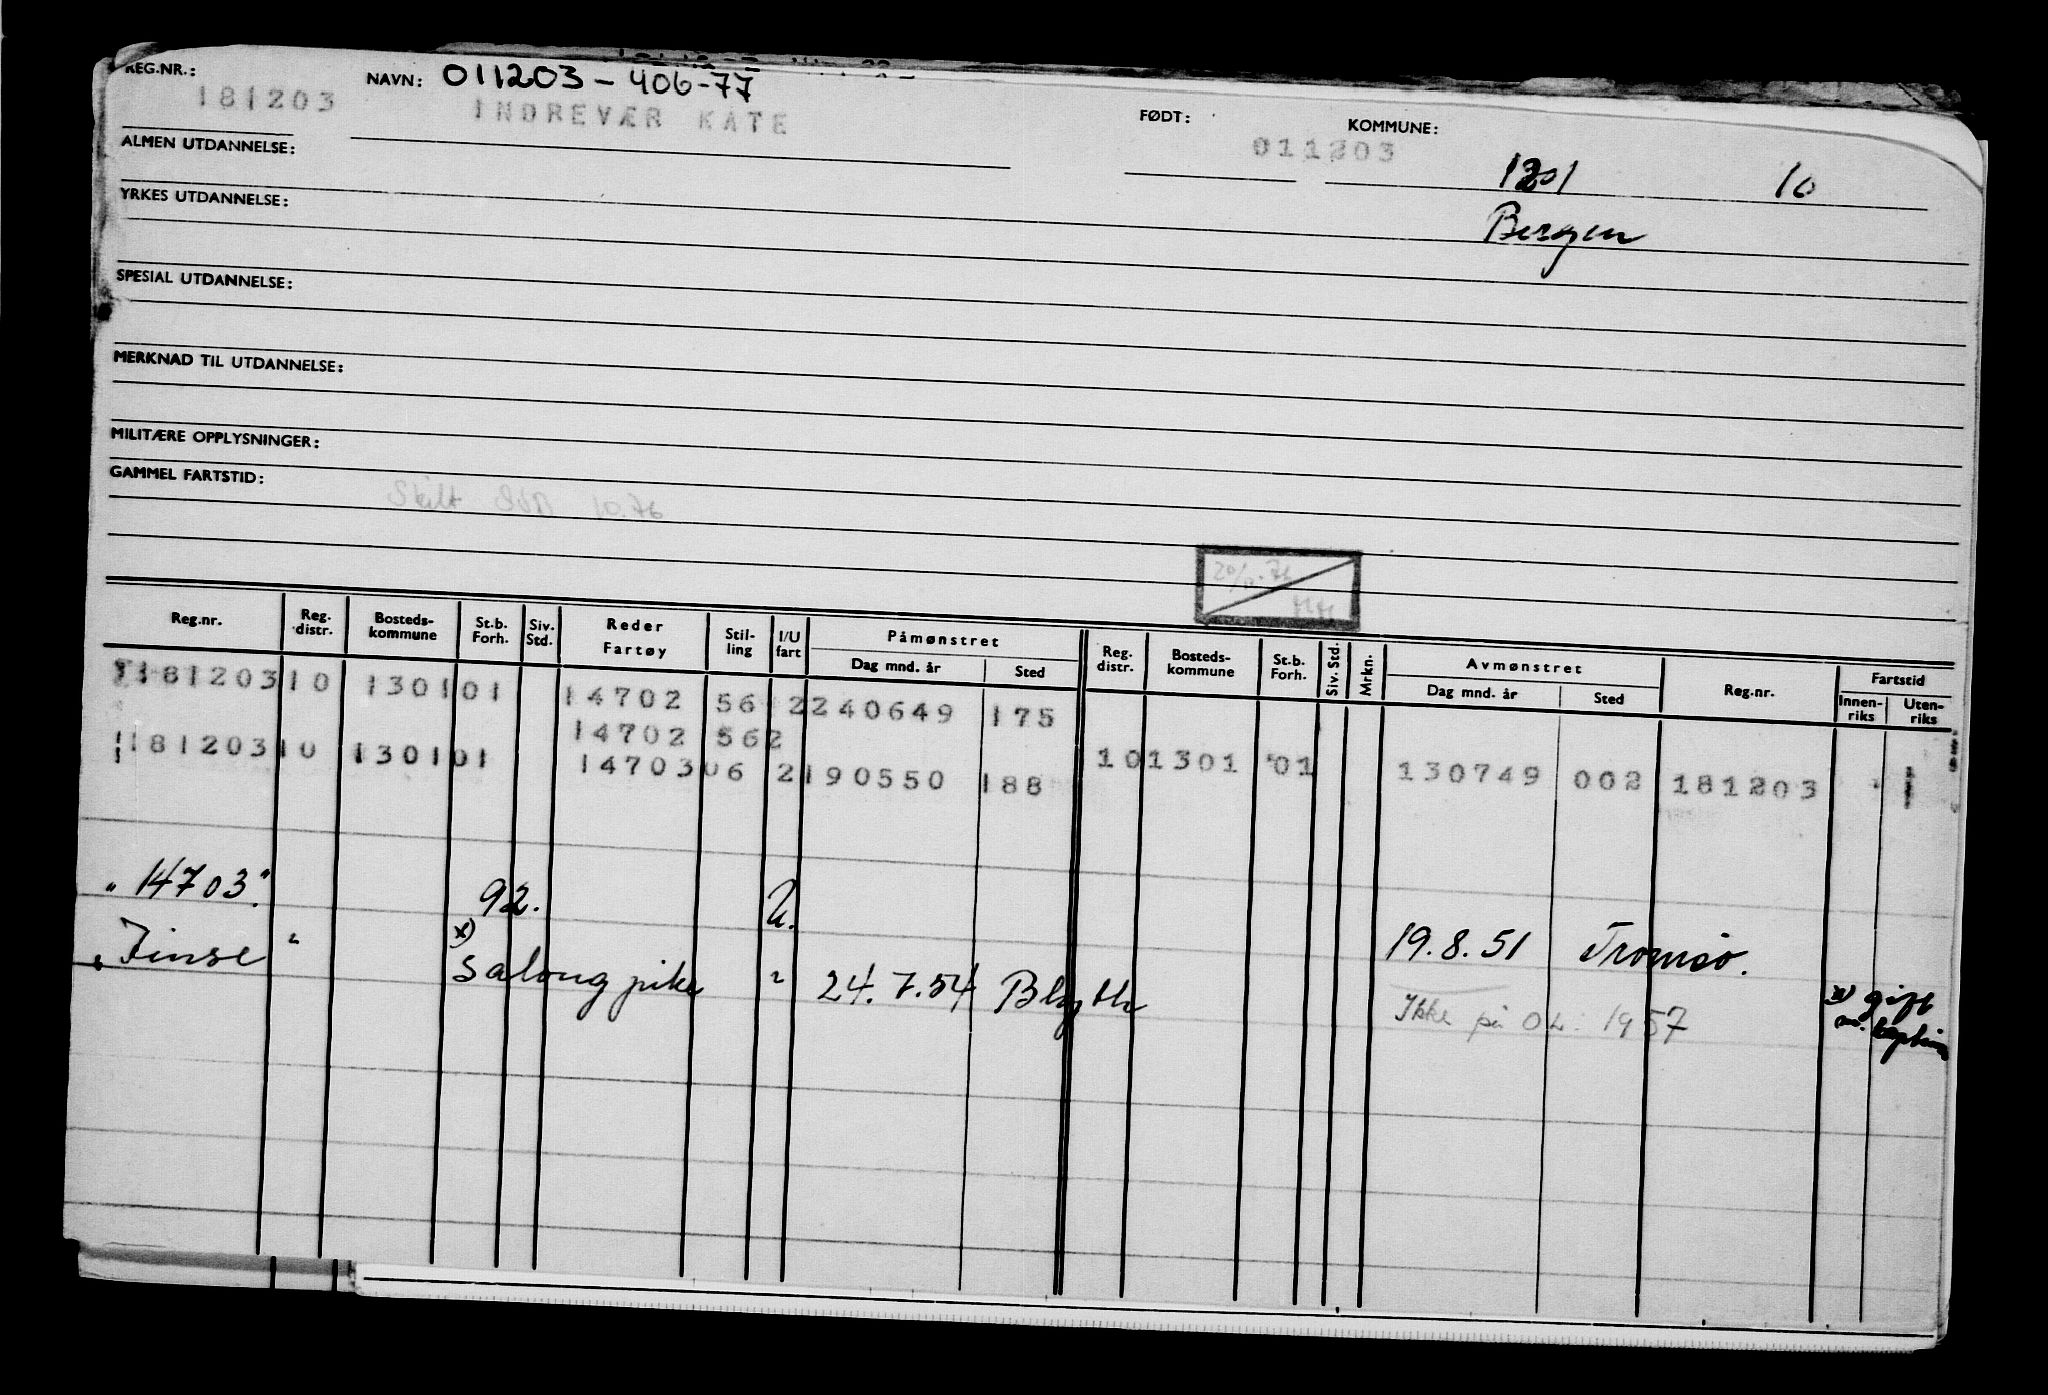 REG.NR.: 181203 NAVN: 011203-406-77
INDREVÆR KATE FØDT: 011203 KOMMUNE: 1201 10
Bergen
ALMEN UTDANNELSE:
YRKES UTDANNELSE:
SPESIAL UTDANNELSE:
MERKNAD TIL UTDANNELSE:
MILITÆRE OPPLYSNINGER:
GAMMEL FARTSTID:
10.76
Reg.nr. Reg. distr. Bosteds-kommune St.b. Forh. Siv. Std. Reder Fartøy Stil-ling I/U fart Påmønstret Dag mnd. år Sted Reg. distr. Bosteds-kommune St.b. Forh. Siv. Std. Mrkn. Avmønstret Dag mnd. år Sted Reg.nr. Fartstid Innen-riks Uten-riks
181203 10 1301 01 14702 56 2 240649 175
14702 562
181203 10 1301 01 14703 06 2 190550 188 10 1301 01 130749 002 181203
"14703" 92. U. 19.8.51 Tromsø.
"Finse" x) Salongpike " 24.7.54 Blyth Ikke på OL. 1957 x) gift m. kaptein